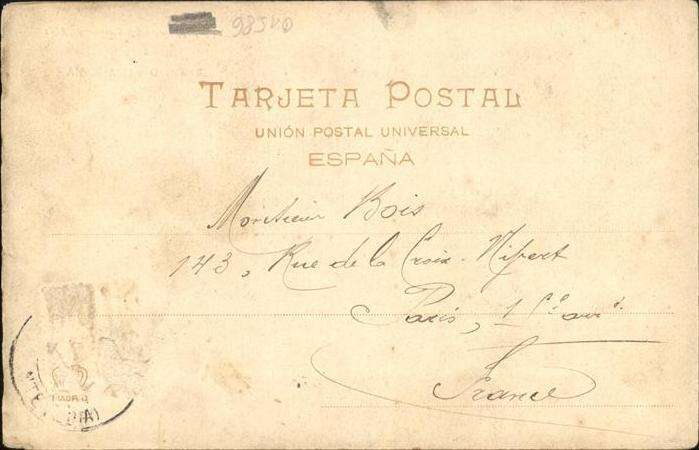 98540
TARJETA POSTAL
UNIÓN POSTAL UNIVERSAL
ESPAÑA
Monsieur Bois
143, Rue de la Croix-Nivert
Paris,
France
MADRID